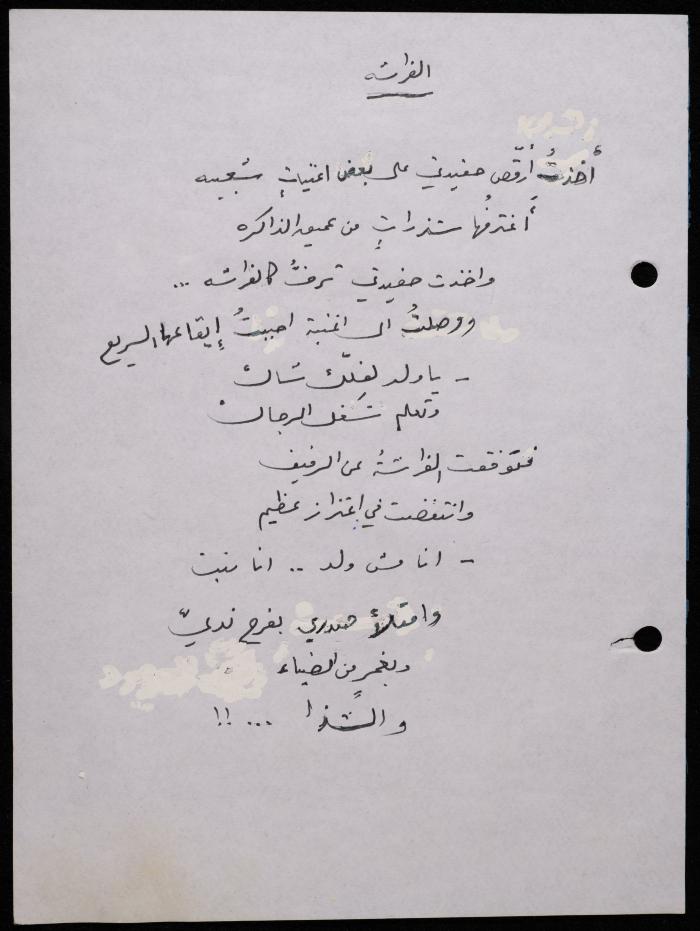 الفراشه
أخذتُ أرقّص حفيدتي على بعض اغنياتٍ شعبيه
أغترفُها شذراتٍ من عميق الذاكره
واخذت حفيدتي ترفُّ كالفراشه ...
ووصلتُ الى اغنية احببتُ إيقاعها السريع
- ياولد لفلّك شال
وتعلم شغل الرجال
فتوقفت الفراشةُ عن الرفيف
وانتفضت في اعتزاز عظيم
- انا مش ولد .. انا بنت
وامتلأ صدري بفرح نديّ
وبغمرٍ من الضياء
والشذا ... !!